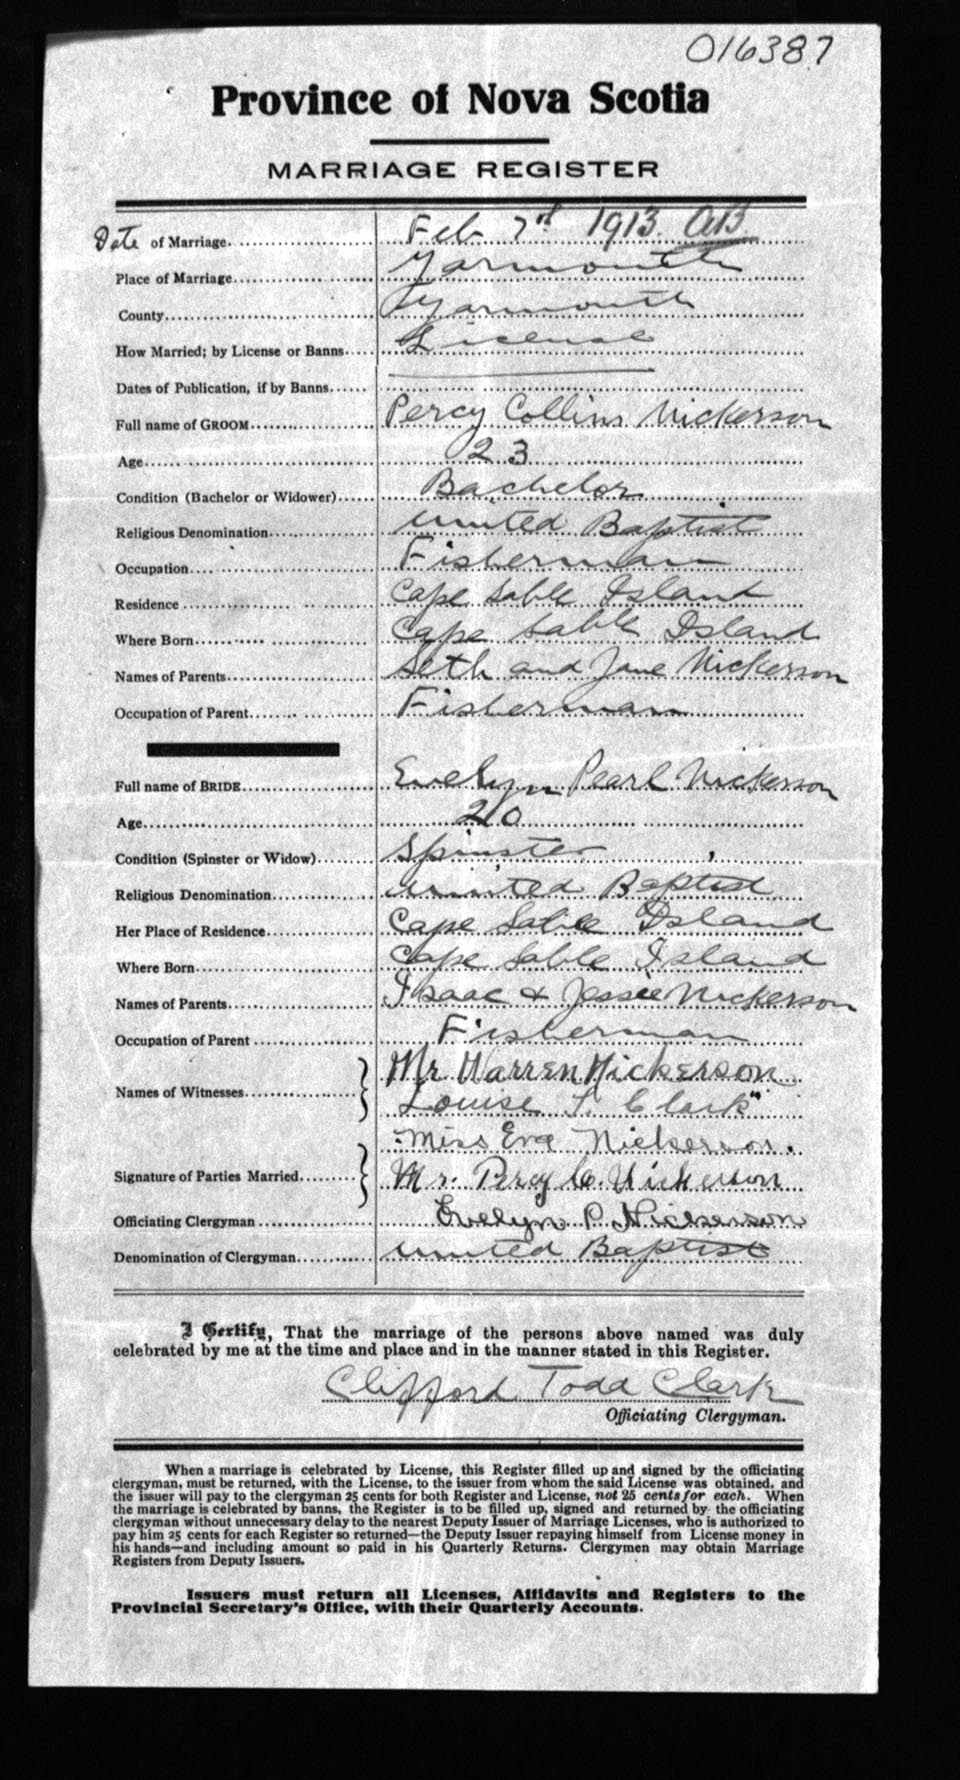 016387
Province of Nova Scotia
MARRIAGE REGISTER
Date of Marriage. Feb 7th 1913. AB.
Place of Marriage. Yarmouth
County. Yarmouth
How Married; by License or Banns. License
Dates of Publication, if by Banns.
Full name of GROOM. Percy Collins Nickerson
Age. 23
Condition (Bachelor or Widower). Bachelor
Religious Denomination. United Baptist
Occupation. Fisherman
Residence Cape Sable Island
Where Born. Cape Sable Island
Names of Parents. Seth and Jane Nickerson
Occupation of Parent. Fisherman
Full name of BRIDE. Evelyn Pearl Nickerson
Age. 20
Condition (Spinster or Widow). Spinster
Religious Denomination. United Baptist
Her Place of Residence. Cape Sable Island
Where Born. Cape Sable Island
Names of Parents. Isaac & Jessie Nickerson
Occupation of Parent Fisherman
Mr Warren Nickerson
Names of Witnesses.
Louise T. Clark"
Miss Eva Nickerson.
Signature of Parties Married. Mr. Percy C. Nickerson
Officiating Clergyman Evelyn P. Nickerson
Denomination of Clergyman. United Baptist
I Certify, That the marriage of the persons above named was duly
celebrated by me at the time and place and in the manner stated in this Register.
Clifford Todd Clark
Officiating Clergyman.
When a marriage is celebrated by License, this Register filled up and signed by the officiating
clergyman, must be returned, with the License, to the issuer from whom the said License was obtained, and
the issuer will pay to the clergyman 25 cents for both Register and License, not 25 cents for each. When
the marriage is celebrated by banns, the Register is to be filled up, signed and returned by the officiating
clergyman without unnecessary delay to the nearest Deputy Issuer of Marriage Licenses, who is authorized to
pay him 25 cents for each Register so returned—the Deputy Issuer repaying himself from License money in
his hands—and including amount so paid in his Quarterly Returns. Clergymen may obtain Marriage
Registers from Deputy Issuers.
Issuers must return all Licenses, Affidavits and Registers to the
Provincial Secretary's Office, with their Quarterly Accounts.